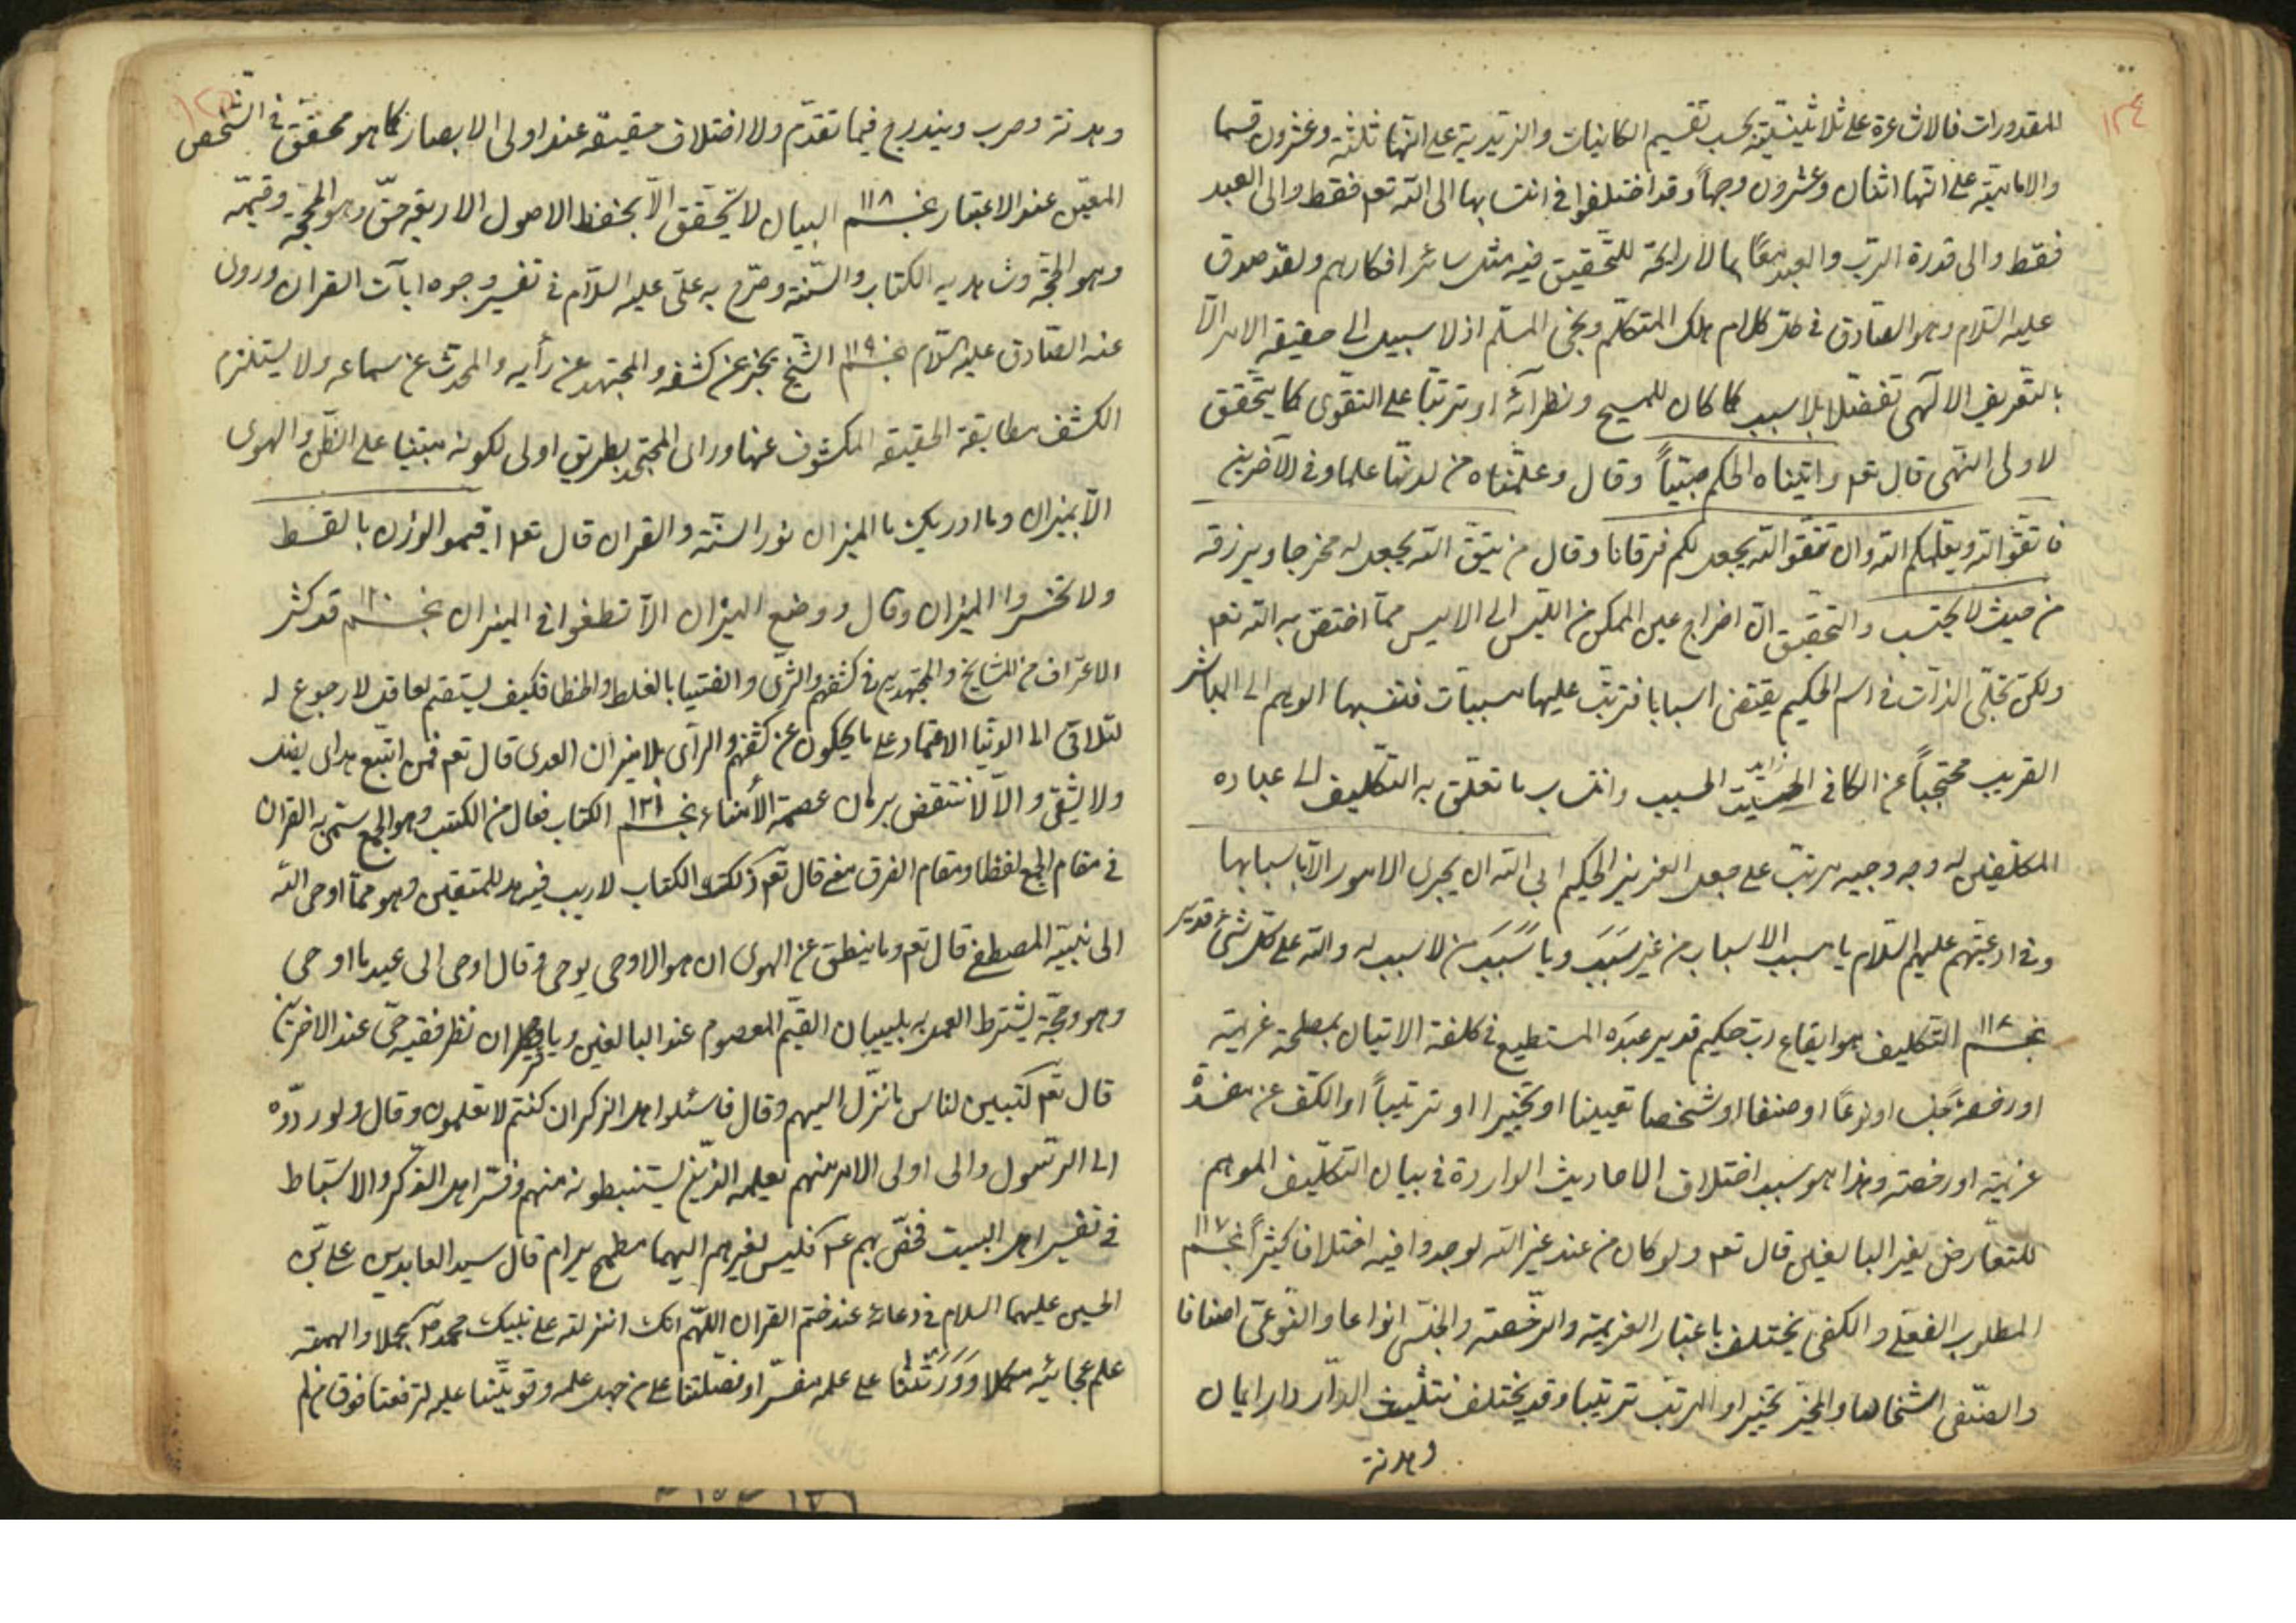 ١٢٤
المقدورات فالاشاعرة على ثلاثينيته بحسب تقسيم الكاينات والزيدية على انها ثلثة وعشرون قسما
والامامية على انها اثنان وعشرون وجها وقد اختلفوا في انتسابها الى الله تعم فقط والى العبد
فقط والى قدرة الرب والعبد معا بما لا رايحة للتحقيق فيه مثل سائر افكارهم ولقد صدق
عليه السلام وهو الصادق في كل كلام هلك المتكلم ونجى المسلم اذ لا سبيل الى حقيقة الامر الا
بالتعريف الالهى تفضلا بلا سبب كما كان للمسيح ونظرائه او ترتبا على التقوى كما يتحقق
لاولى النهى قال تعم واتيناه الحكم صبيا وقال وعلمناه من لدنا علما وفي الآخرين
فاتقوا الله ويعلمكم الله وان تتقوا الله يجعل لكم فرقانا وقال من يتق الله يجعل له مخرجا ويرزقه
من حيث لا يحتسب والتحقيق ان اخراج عين الممكن من الليس الى الايس مما اختص به الله تعم
ولكن تجلى الذات في اسم الحكيم يقتضى اسبابا فترتب عليها مسببات فتنسبها الوهم الى المباشر
القريب محتجبا عن الكافي الحسيب وانتساب ما تعلق به التكليف الى عباده
المكلفين له وجه وجيه مرتب على جعل العزيز الحكيم ابى الله ان يجرى الامور الا باسبابها
وفي ادعيتهم عليهم السلام يا مسبب الاسباب من غير سبب ويا سبب من لا سبب له والله على كل شئ قدير
نجم ١١٦ التكليف هو ايقاع رب حكيم قدير عبده المستطيع في كلفة الاتيان بمصلحة عزيمة
او رخصة جنسا او نوعا او صنفا او شخصا تعيينا او تخييرا او ترتيبا او الكف عن مفسدة
عزيمة او رخصة وهذا هو سبب اختلاف الاحاديث الواردة في بيان التكليف الموهم
للتعارض لغير البالغين قال تعم ولو كان من عند غير الله لوجدوا فيه اختلافا كثيرا نجم ١١٧
المطلوب الفعلى والكفى يختلف باعتبار العزيمة والرخصة والجنسى انواعا والنوعى اصنافا
والصنفى اشخاصا والمخير تخييرا والمرتب ترتيبا وقد يختلف بتثليث الدار دار ايمان
وهدنة
١٢٥
وهدنة وحرب ويندرج فيما تقدم ولا اختلاف حقيقة عند اولى الابصار كما هو محقق في الشخص
المعين عند الاعتبار نجم ١١٨ البيان لا يتحقق الا بحفظ الاصول الاربعة حق وهو الحجة وقيمه
وهو الحجة وشاهد به الكتاب والسنة وصرح به على عليه السلام في تفسير وجوه ايات القران وروى
عنه الصادق عليه السلام نجم ١١٩ الشيخ يخبر عن كشفه والمجتهد عن رأيه والمحدث عن سماعه ولا يستلزم
الكشف مطابقة الحقيقة المكشوف عنها وراى المجتهد بطريق اولى لكونه مبتنيا على الظن والهوى
الا بميزان وما ادريك ما الميزان نور السنة والقران قال تعم اقيموا الوزن بالقسط
ولا تخسروا الميزان وقال ووضع الميزان الا تطغوا في الميزان نجم ١٢٠ قد كثر
الاعتراف من المشايخ والمجتهدين في كشفهم والرأى والفتيا بالغلط والخطا فكيف يستقيم لعاقل لا رجوع له
الاعتماد على ما يحكون عن كشفهم والرأى بلا ميزان العدى قال تعم فمن اتبع هداى يضل
ولا يشقى والا لانتقض برهان عصمة الأمناء نجم ١٢١ الكتاب فعال من الكتب وهو الجمع سمى به القران
في مقام الجمع لفظا ومقام الفرق معنى قال تعم ذلك الكتاب لا ريب فيه هدى للمتقين وهو مما اوحى الله
الى نبيه المصطفى قال تعم وما ينطق عن الهوى ان هو الا وحى يوحى وقال اوحى الى عبده ما اوحى
وهو حجة يشترط العمل به بيبان القيم المعصوم عند البالغين نظر فقيه حى عند الاخرين
قال تعم لتبين لناس ما نزل اليهم وقال فاسئلوا اهل الذكر ان كنتم لا تعلمون وقال ولو ردوه
الى الرسول والى اولى الامر منهم لعلمه الذين يستنبطونه منهم وفسر اهل الذكر والاستنباط
في تفسير اهل البيت فخص بهم عم فليس لغيرهم اليهما مطمح يرام قال سيد العابدين على بن
الحسين عليهما السلام في دعائه عند ختم القران اللهم انك انزلته على نبيك محمد ص مجملا والهمته
علم عجائبه مكملا وورثتنا علمه مفسرا وفضلتنا على من جهل علمه وقويتنا عليه لترفعنا فوق من لم